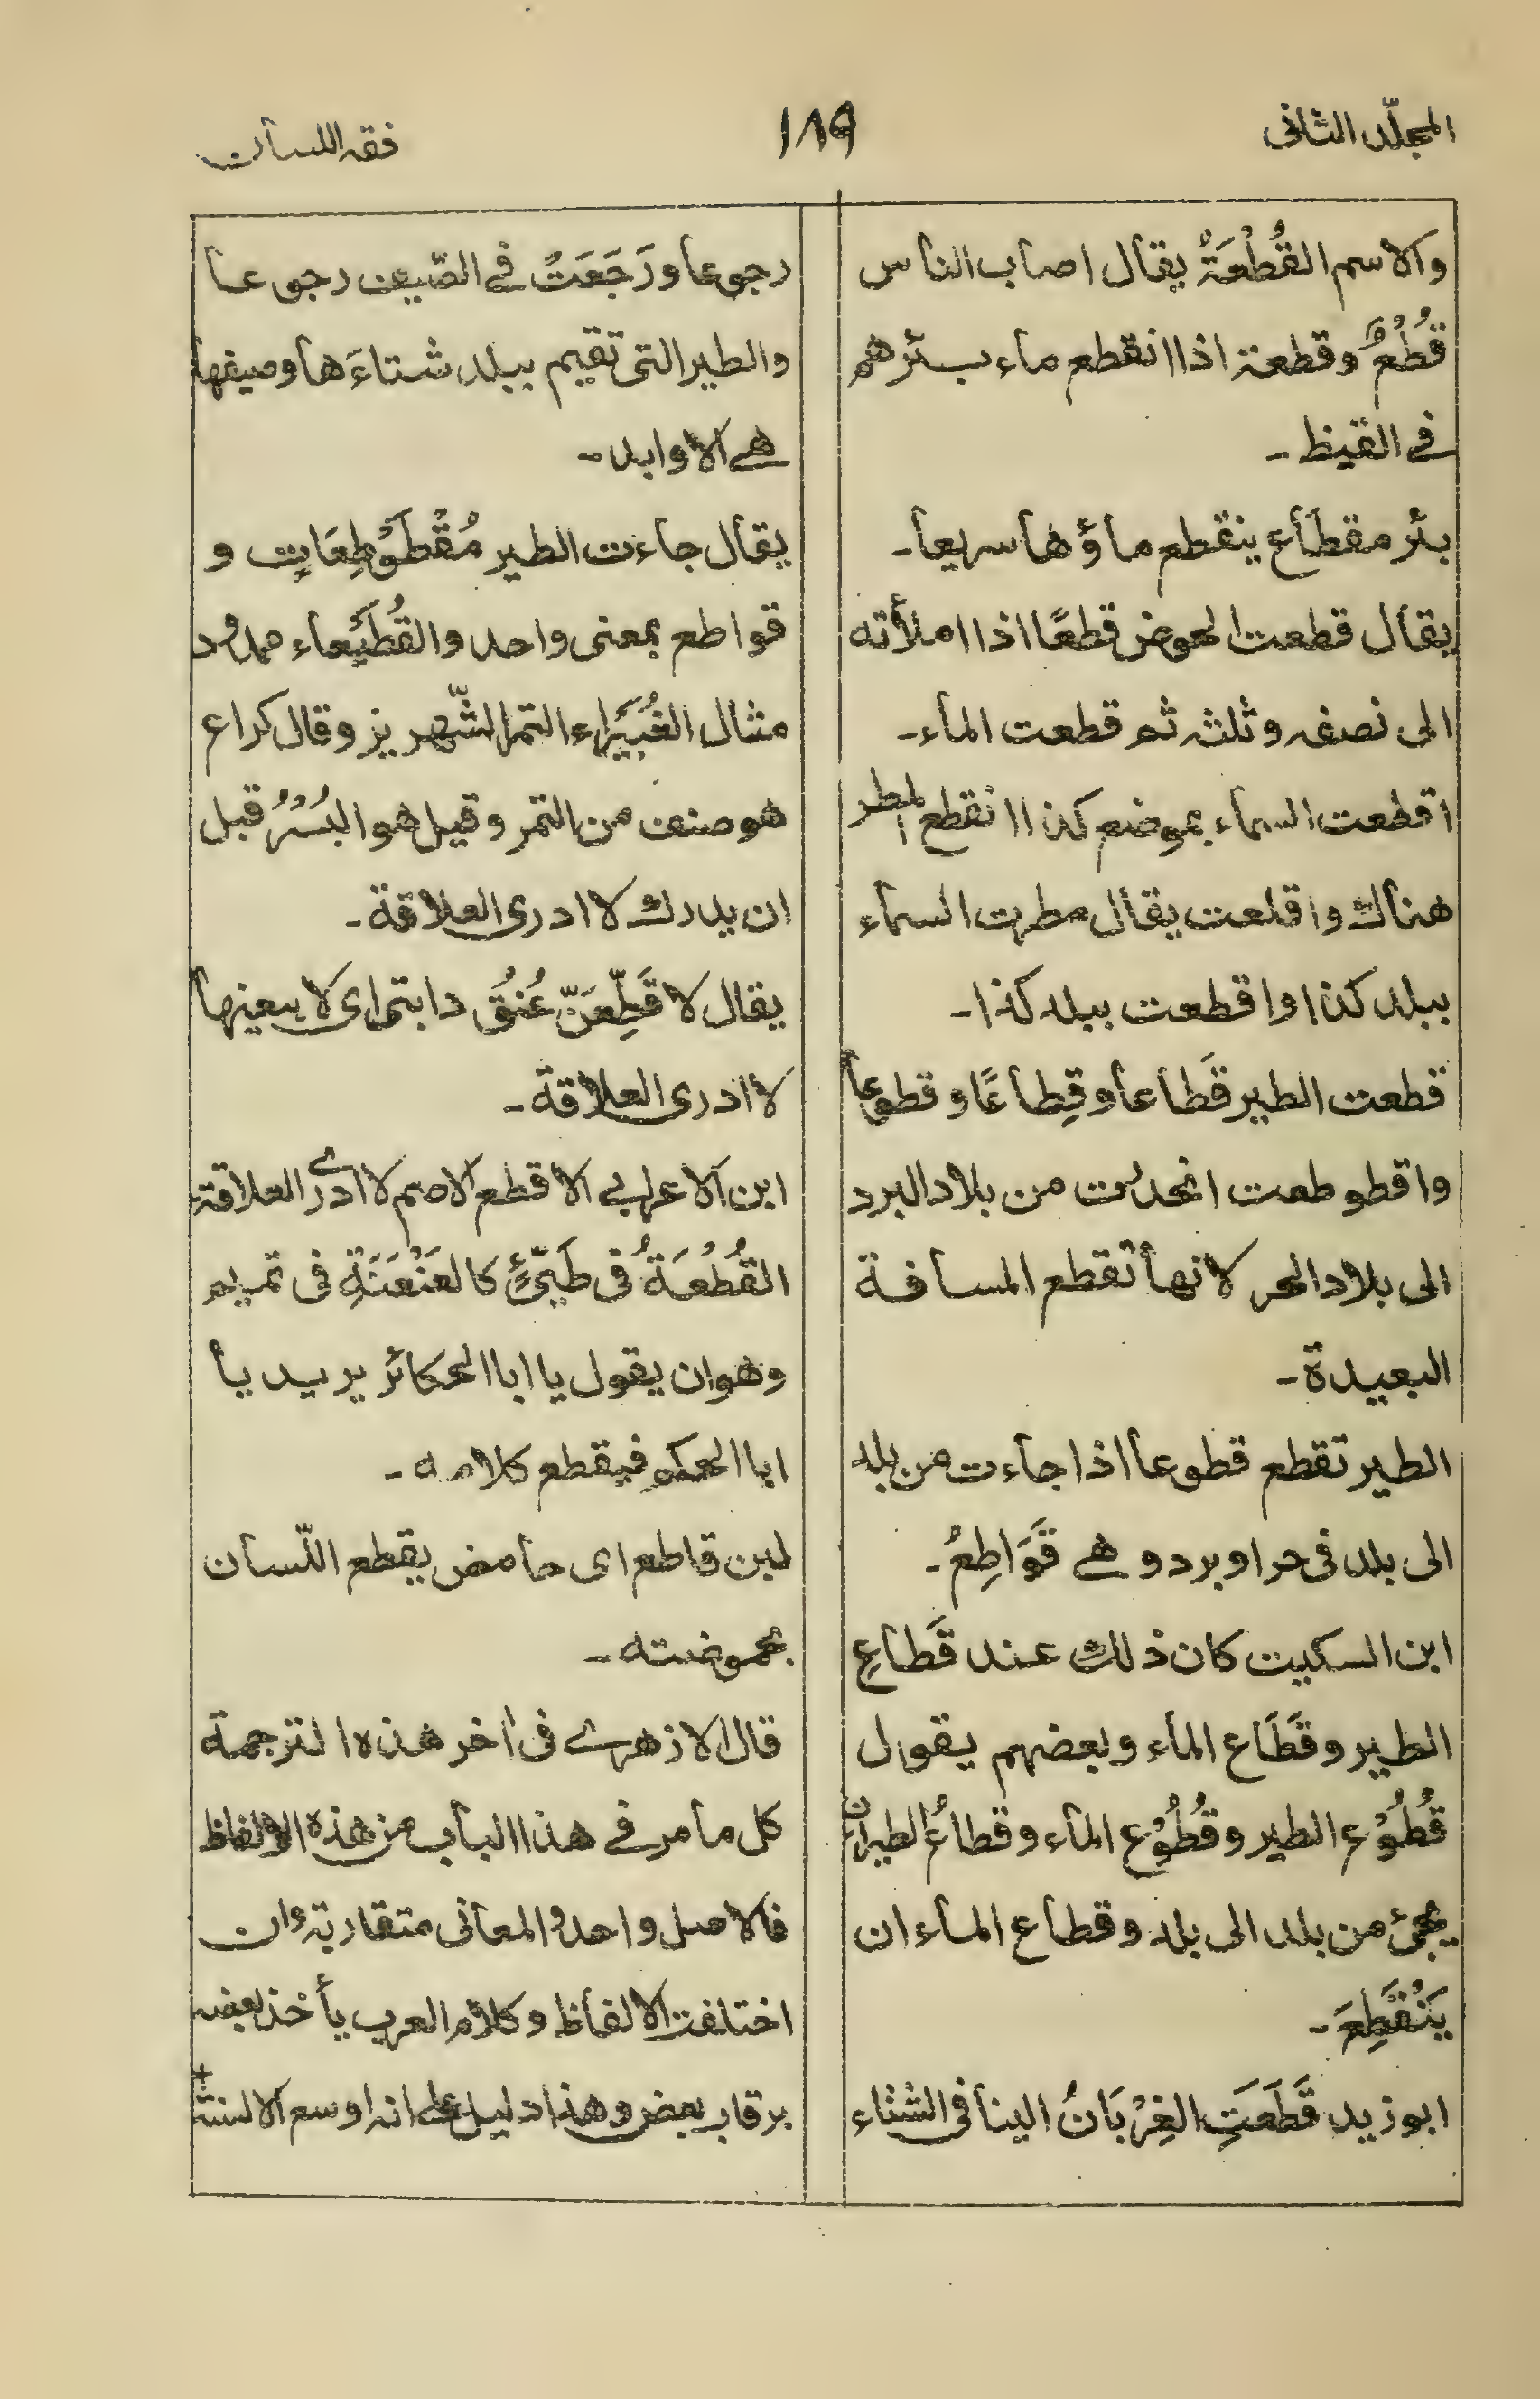 المجلّد الثانی
١٨٩
فقه اللسان
والاسم القُطْعَةُ يقال اصاب الناس
قُطْعٌ وقطعة اذا انقطع ماء بئرهم
فے القيظ ـ
بئر مقطاع ينقطع ماؤها سريعا ـ
يقال قطعت الحوض قطعًا اذا املأته
الى نصفه وثلثه ثم قطعت الماء ـ
اقطعت السماء بموضع كذا انقطع المطر
هناك واقلعت يقال مطرت السماء
ببلد كذا واقطعت ببلد كذا ـ
قطعت الطير قَطاعا وقِطاعًا وقطوعاً
واقطوطعت انحدرت من بلاد البرد
الى بلاد الحر لانها تقطع المسافة
البعيدة ـ
الطير تقطع قطوعا اذا جاءت من بلد
الى بلد فى حر او برد وهے قَوَاطِعُ ـ
ابن السكيت كان ذلك عند قَطاعِ
الطير وقَطَاع الماء وبعضهم يقول
قُطُوْع الطير وقُطُوْع الماء وقطاعُ الطير ان
يجئ من بلد الى بلد وقطاع الماء ان
يَنْقَطِعَ ـ
ابوزيد قَطَعَتِ الغِرْبَانُ الينا فى الشتاء
رجوعا ورَجَعَتْ فے الصّيف رجوعا
والطير التى تقيم ببلد شتاءَها وصيفها
هے الاوابد ـ
يقال جاءت الطير مُقْطَوْطِعَاتٍ و
قواطع بمعنى واحد والقُطَيْعاء ممدود
مثال الغُبَيْرَاء التمر الشّهريز وقال كراع
هو صنف من التمر وقيل هو البُسْرُ قبل
ان يدرك لا ادرى العلاقة ـ
يقال لاقَطِّعَنّ عُنُقَ دابتى اى لابيعنها
لا ادرى العلاقة ـ
ابن الاعرابے الاقطع الاصم لا ادرے العلاقة ـ
القُطْعَةُ فى طَيِّئٍ كالعَنْعَنَةِ فى تميم
وهو ان يقول يا ابا الحكائز يريد يا
ابا الحكم فيقطع كلامه ـ
لبن قاطع اى حامض يقطع اللّسان
بحموضته ـ
قال الازهرے فى اخر هذه الترجمة
كل ما مر فے هذا الباب من هذه الالفاظ
فالاصل واحد والمعانى متقاربة وان
اختلفت الالفاظ وكلام العرب يأخذ بعضه
برقاب بعض وهذا دليل على انه اوسع الالسنة